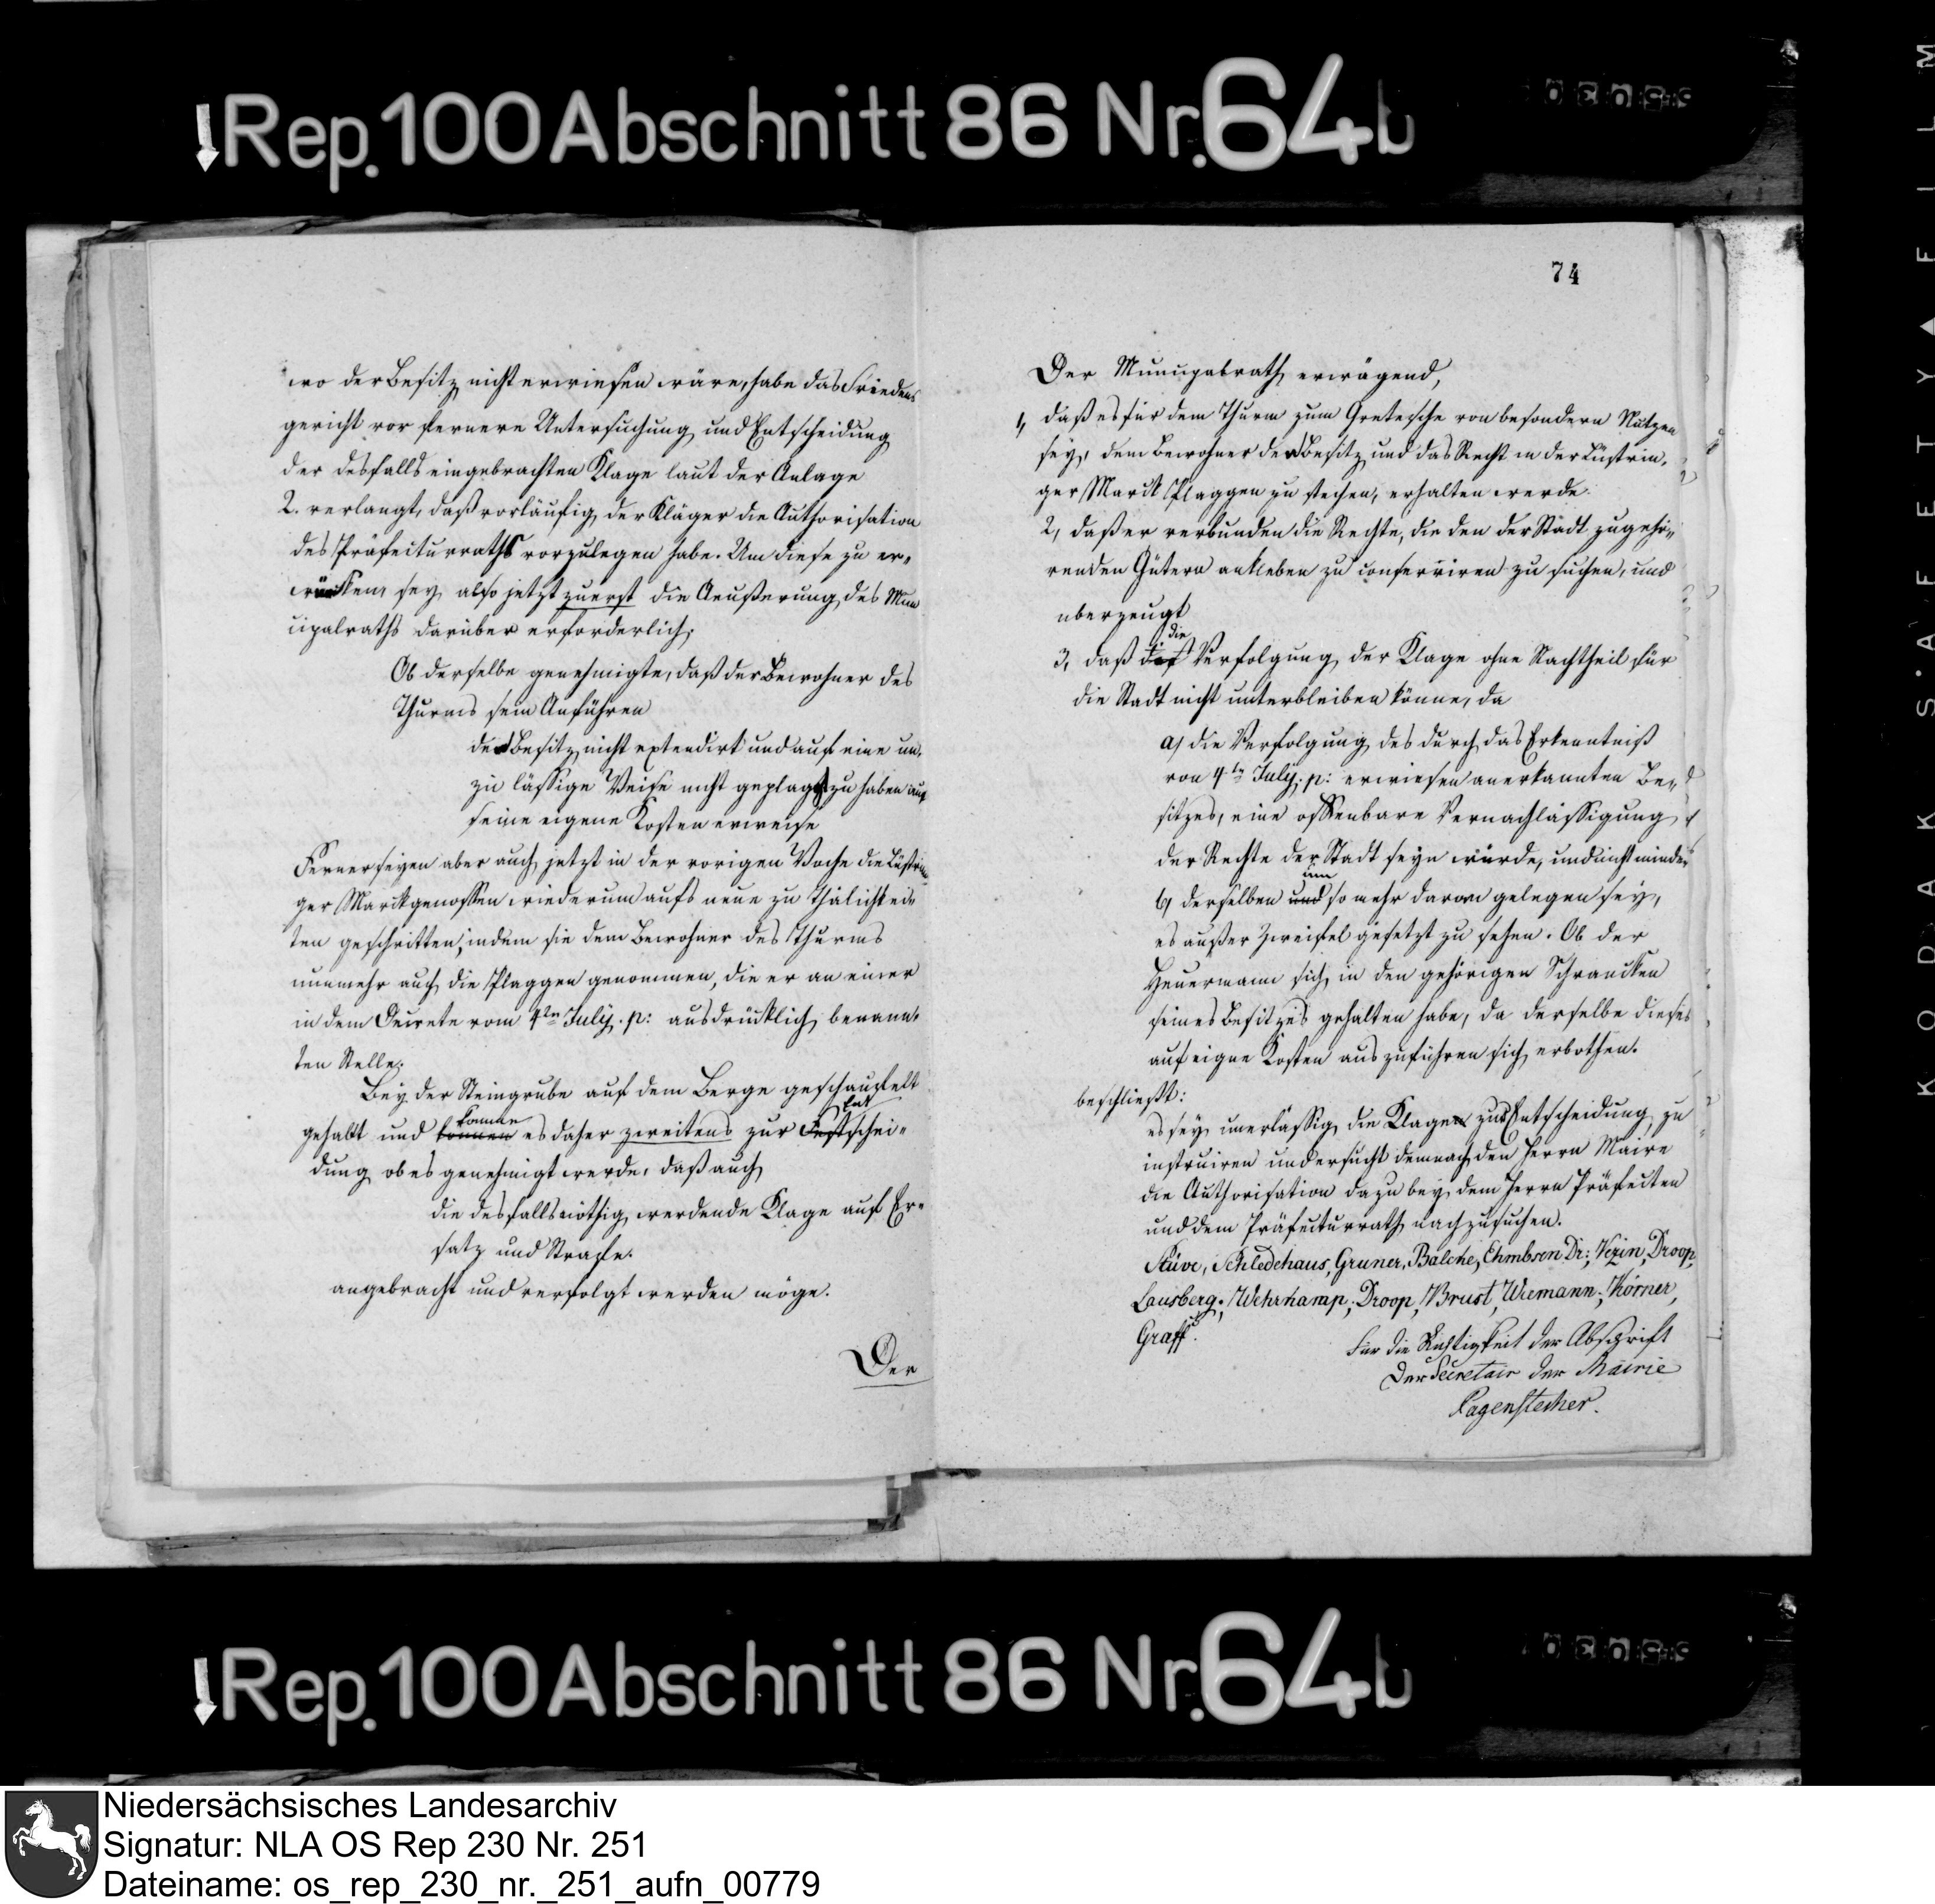 Rep. 100 Abschnitt 86 Nr. 64b
wo der Besitz nicht erwiesen wäre, habe das Friedens
gericht vor fernere Untersuchung und Entscheidung
der desfalls eingebrachten Klage laut der Anlage
2. verlangt, daß vorläufig der Kläger die Authorisation
des Präfecturraths vorzulegen habe. Um diese zu er-
würcken, sey also jetzt zuerst die Aeußerung des Muni
cipalraths darüber erforderlich,
Ob derselbe genehmigte, daß der Bewohner des
Thurms sein Anführen
den Besitz nicht extendirt und auf eine un-
zu lässige Weise nicht geplagt zu haben auf
seine eigene Kosten erweise
Ferner seyen aber auch jetzt in der vorigen Woche die Lüstrin-
ger Marckgenossen wiederum aufs neue zu Thälichkei-
ten geschritten, indem sie dem Bewohner des Thurms
nunmehr auch die Plaggen genommen, die er an einer
in dem Decrete vom 4ten July. p: ausdrücklich benann-
ten Stelle.
Bey der Steingrube auf dem Berge geschaufelt
gehabt und können komme es daher zweitens zur Festschei- Ent
dung ob es genehmigt werde, daß auch
die desfalls nöthig werdende Klage auf Er-
satz und Strafe.
angebracht und verfolgt werden möge.
Der
74
Der Municipalrath erwägend,
1, daß es für dem Thurm zum Gretesche von besondern Nutzen
sey, dem Bewohner den Besitz und das Recht in der Lüstrin-
ger Marck Plaggen zu stechen, erhalten werde.
2, daß er verbunden die Rechte, die den der Stadt zugehö-
renden Gütern ankleben zu conserviren zu suchen, und
überzeugt
die
3, daß Verfolgung der Klage ohne Nachtheil für
die Stadt nicht unterbleiben könne, da
a) die Verfolgung des durch das Erkenntniß
von 4tn July. p: erwiesen anerkannten Be-
sitzes, eine offenbare Vernachlässigung
der Rechte der Stadt seyn würde, und nicht minder
um
b) derselben und so mehr daran gelegen sey,
es außer Zweifel gesetzt zu sehen. Ob der
Heuermann sich in den gehörigen Schrancken
seines Besitzes gehalten habe, da derselbe dieses
auf eigne Kosten auszuführen sich erbothen.
beschließt:
es sey unerlässig die Klage zur Entscheidung zu
instruiren und ersucht demnach den Herrn Maire
die Authorisation dazu bey dem Herrn Präfecten
und dem Präfecturrath nachzusuchen.
Stüve, Schledehaus, Gruner, Balcke, Ehmbsen Dr; Vezin, Droop,
Lausberg; Wehrkamp; Droop, Brust, Wiemann; Körner,
Graff.
Für die Richtigkeit der Abschrift
Der Secretair der Mairie
Pagenstecher.
Rep. 100 Abschnitt 86 Nr. 64b
KODAK S·A F E T Y ▲ F I L M
Niedersächsisches Landesarchiv
Signatur: NLA OS Rep 230 Nr. 251
Dateiname: os_rep_230_nr._251_aufn_00779